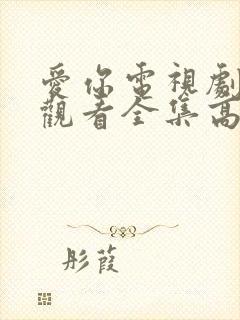 愛你電視劇
觀看全集高
彤葭